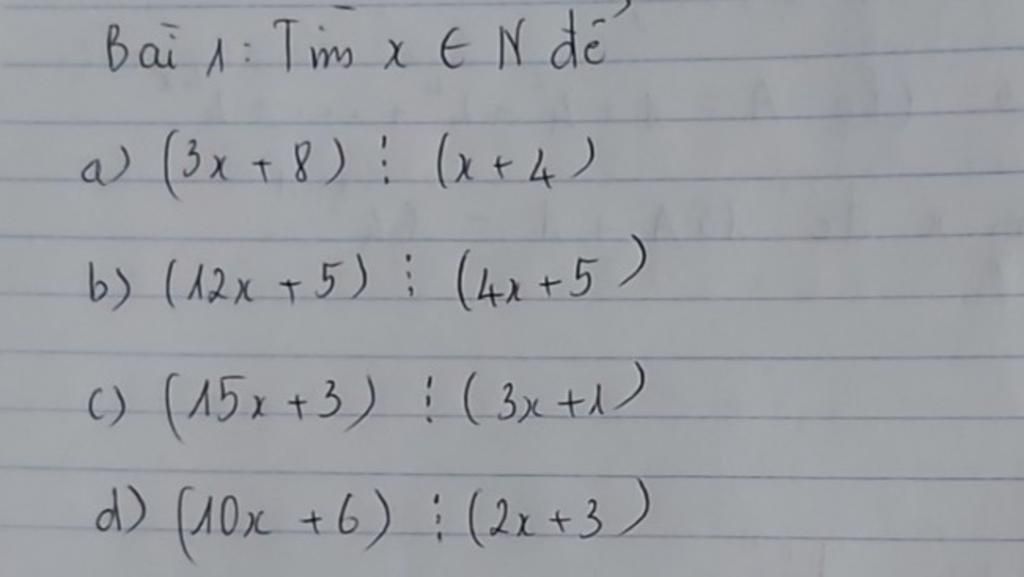 Bài 1: Tìm x ∈ N để
a) (3x + 8) ⋮ (x + 4)
b) (12x + 5) ⋮ (4x + 5)
c) (15x + 3) ⋮ (3x + 1)
d) (10x + 6) ⋮ (2x + 3)